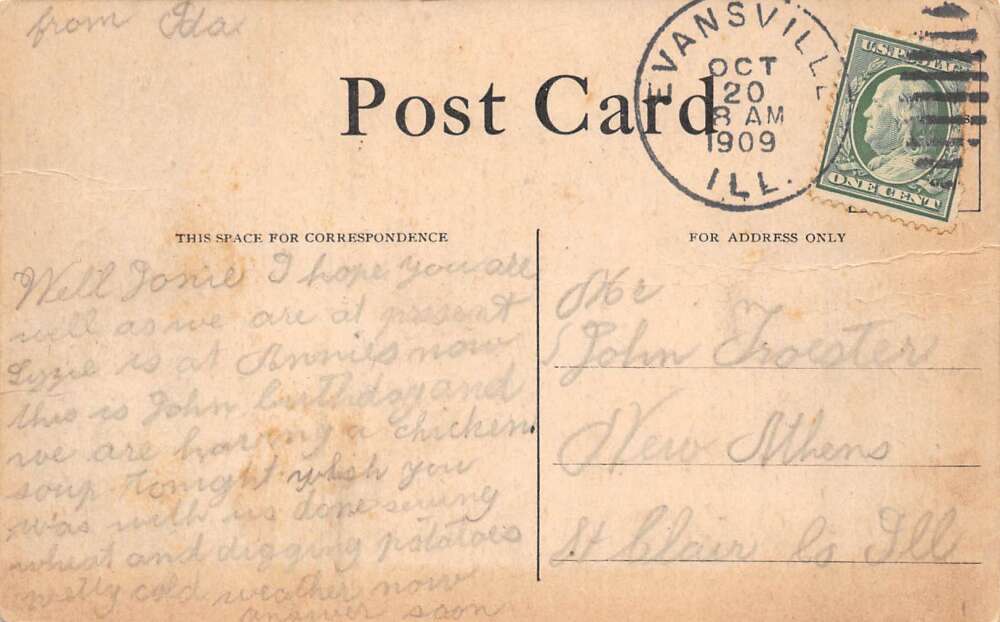 from Ida
Post Card
EVANSVILLE
OCT
20
8 AM
1909
ILL.
U.S. POSTAGE
ONE CENT
THIS SPACE FOR CORRESPONDENCE
Well I hope you are
well as we are at present
Lizzie is at Annies now
this is John birthday and
we are having a chicken
soup tonight wish you
was with us done sewing
wheat and digging potatoes
pretty cold weather now
answer soon
FOR ADDRESS ONLY
Mr
John Troester
New Athens
St Clair Co Ill